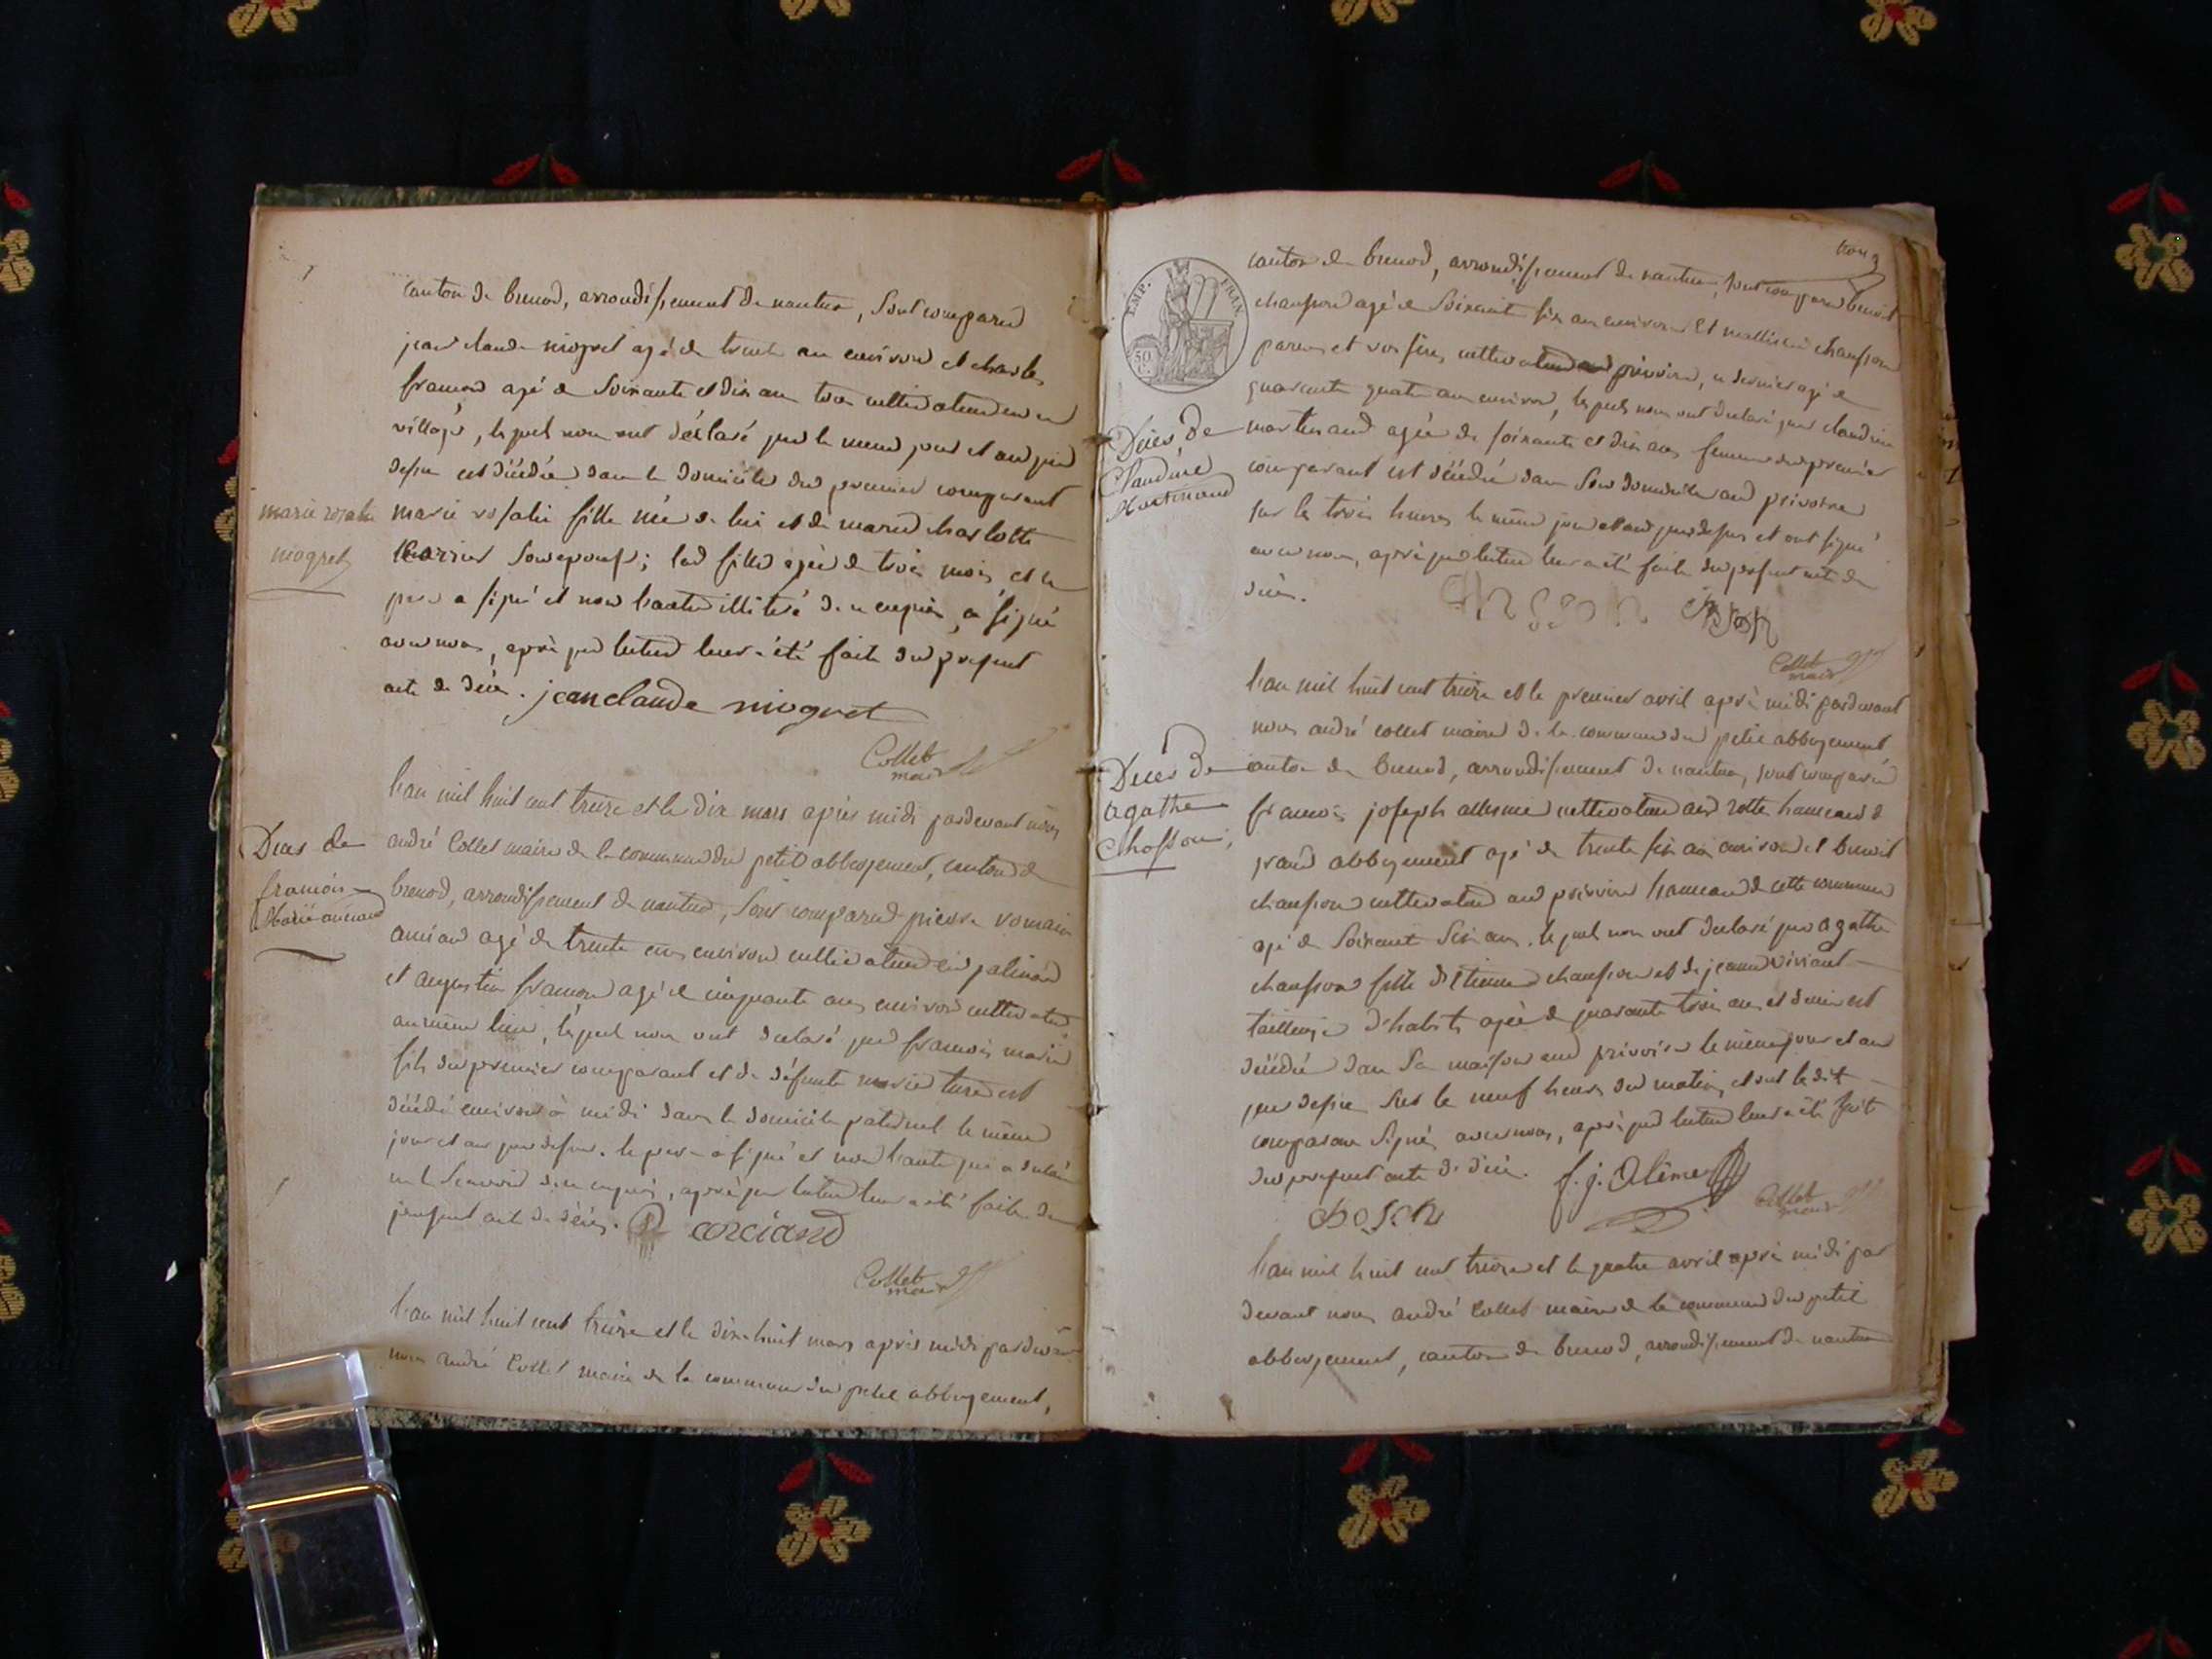 canton de brenod, arrondissement de nantua, sont comparu
jean claude niogret agé de trente ans environ et charles
framond agé de soixante et dix ans tous cultivateurs en ce
village, lesquels nous ont déclaré que le même jour et an que
dessus est décédée dans le domicile du premier comparant
marie rosalie
niogret
marie rosalie fille née de lui et de marie charlotte
carrier son epouse; lad fille agée de trois mois, et le
pere a signé et non l'autre illitéré de ce enquis, a signé
avec nous, après que lecture leur a été faite du present
acte de décès. jean claude niogret
Collet
maire
l'an mil huit cent treize et le dix mars après midi pardevant nous
Deces de
francois
Marie anciand
andré Collet maire de la commune du petit abbergement, canton de
brenod, arrondissement de nantua, sont comparu pierre romain
anciand agé de trente ans environ cultivateur en
et augustin framond agé de cinquante ans environ cultivateur
au même lieu, lesquels nous ont declaré que francois marie
fils du premier comparant et de défunte marie est
décédé environ à midi dans le domicile paternel le même
jour et an que dessus. le pere a signé et non l'autre qui a declaré
ne le scavoir de ce enquis, après que lecture leur a été faite du
present acte de décès. anciand
Collet
maire
l'an mil huit cent treize et le dix huit mars après midi pardevant
nous andré Collet maire de la commune du petit abbergement,
trois
EMP. FRAN.
50 C.
canton de brenod, arrondissement de nantua, sont comparu benoit
chausson agé de soixante six ans environ et chausson
parens et voisins cultivateurs, ce dernier agé de
quarante quatre ans environ, lesquels nous ont declaré que claudine
Décès de
Claudine
Martinand
martinand agée de soixante et dix ans femme du premier
comparant est décédée dans son domicile
sur les trois heures le même jour et an que dessus et ont signé
avec nous, après que lecture leur a été faite du present acte de
décès.
Collet
maire
l'an mil huit cent treize et le premier avril après midi pardevant
nous andré collet maire de la commune du petit abbergement
Décès de
agathe
Chosson;
canton de brenod, arrondissement de nantua, sont comparu
francois joseph cultivateur hameau de
grand abbergement agé de trente six ans environ et benoit
chausson cultivateur hameau de cette commune
agé de soixante six ans, lesquels nous ont declaré que agathe
chausson fille d'Etienne chausson et de jeanne viviant
tailleuse d'habits agée de quarante trois ans et demi est
décédée dans sa maison le même jour et an
que dessus sur les neuf heures du matin, et ont les dits
comparans signés avec nous, après que lecture leur a été faite
du present acte de décès. f. j. Alime
Collet
maire
l'an mil huit cent treize et le quatre avril après midi par
devant nous andré Collet maire de la commune du petit
abbergement, canton de brenod, arrondissement de nantua